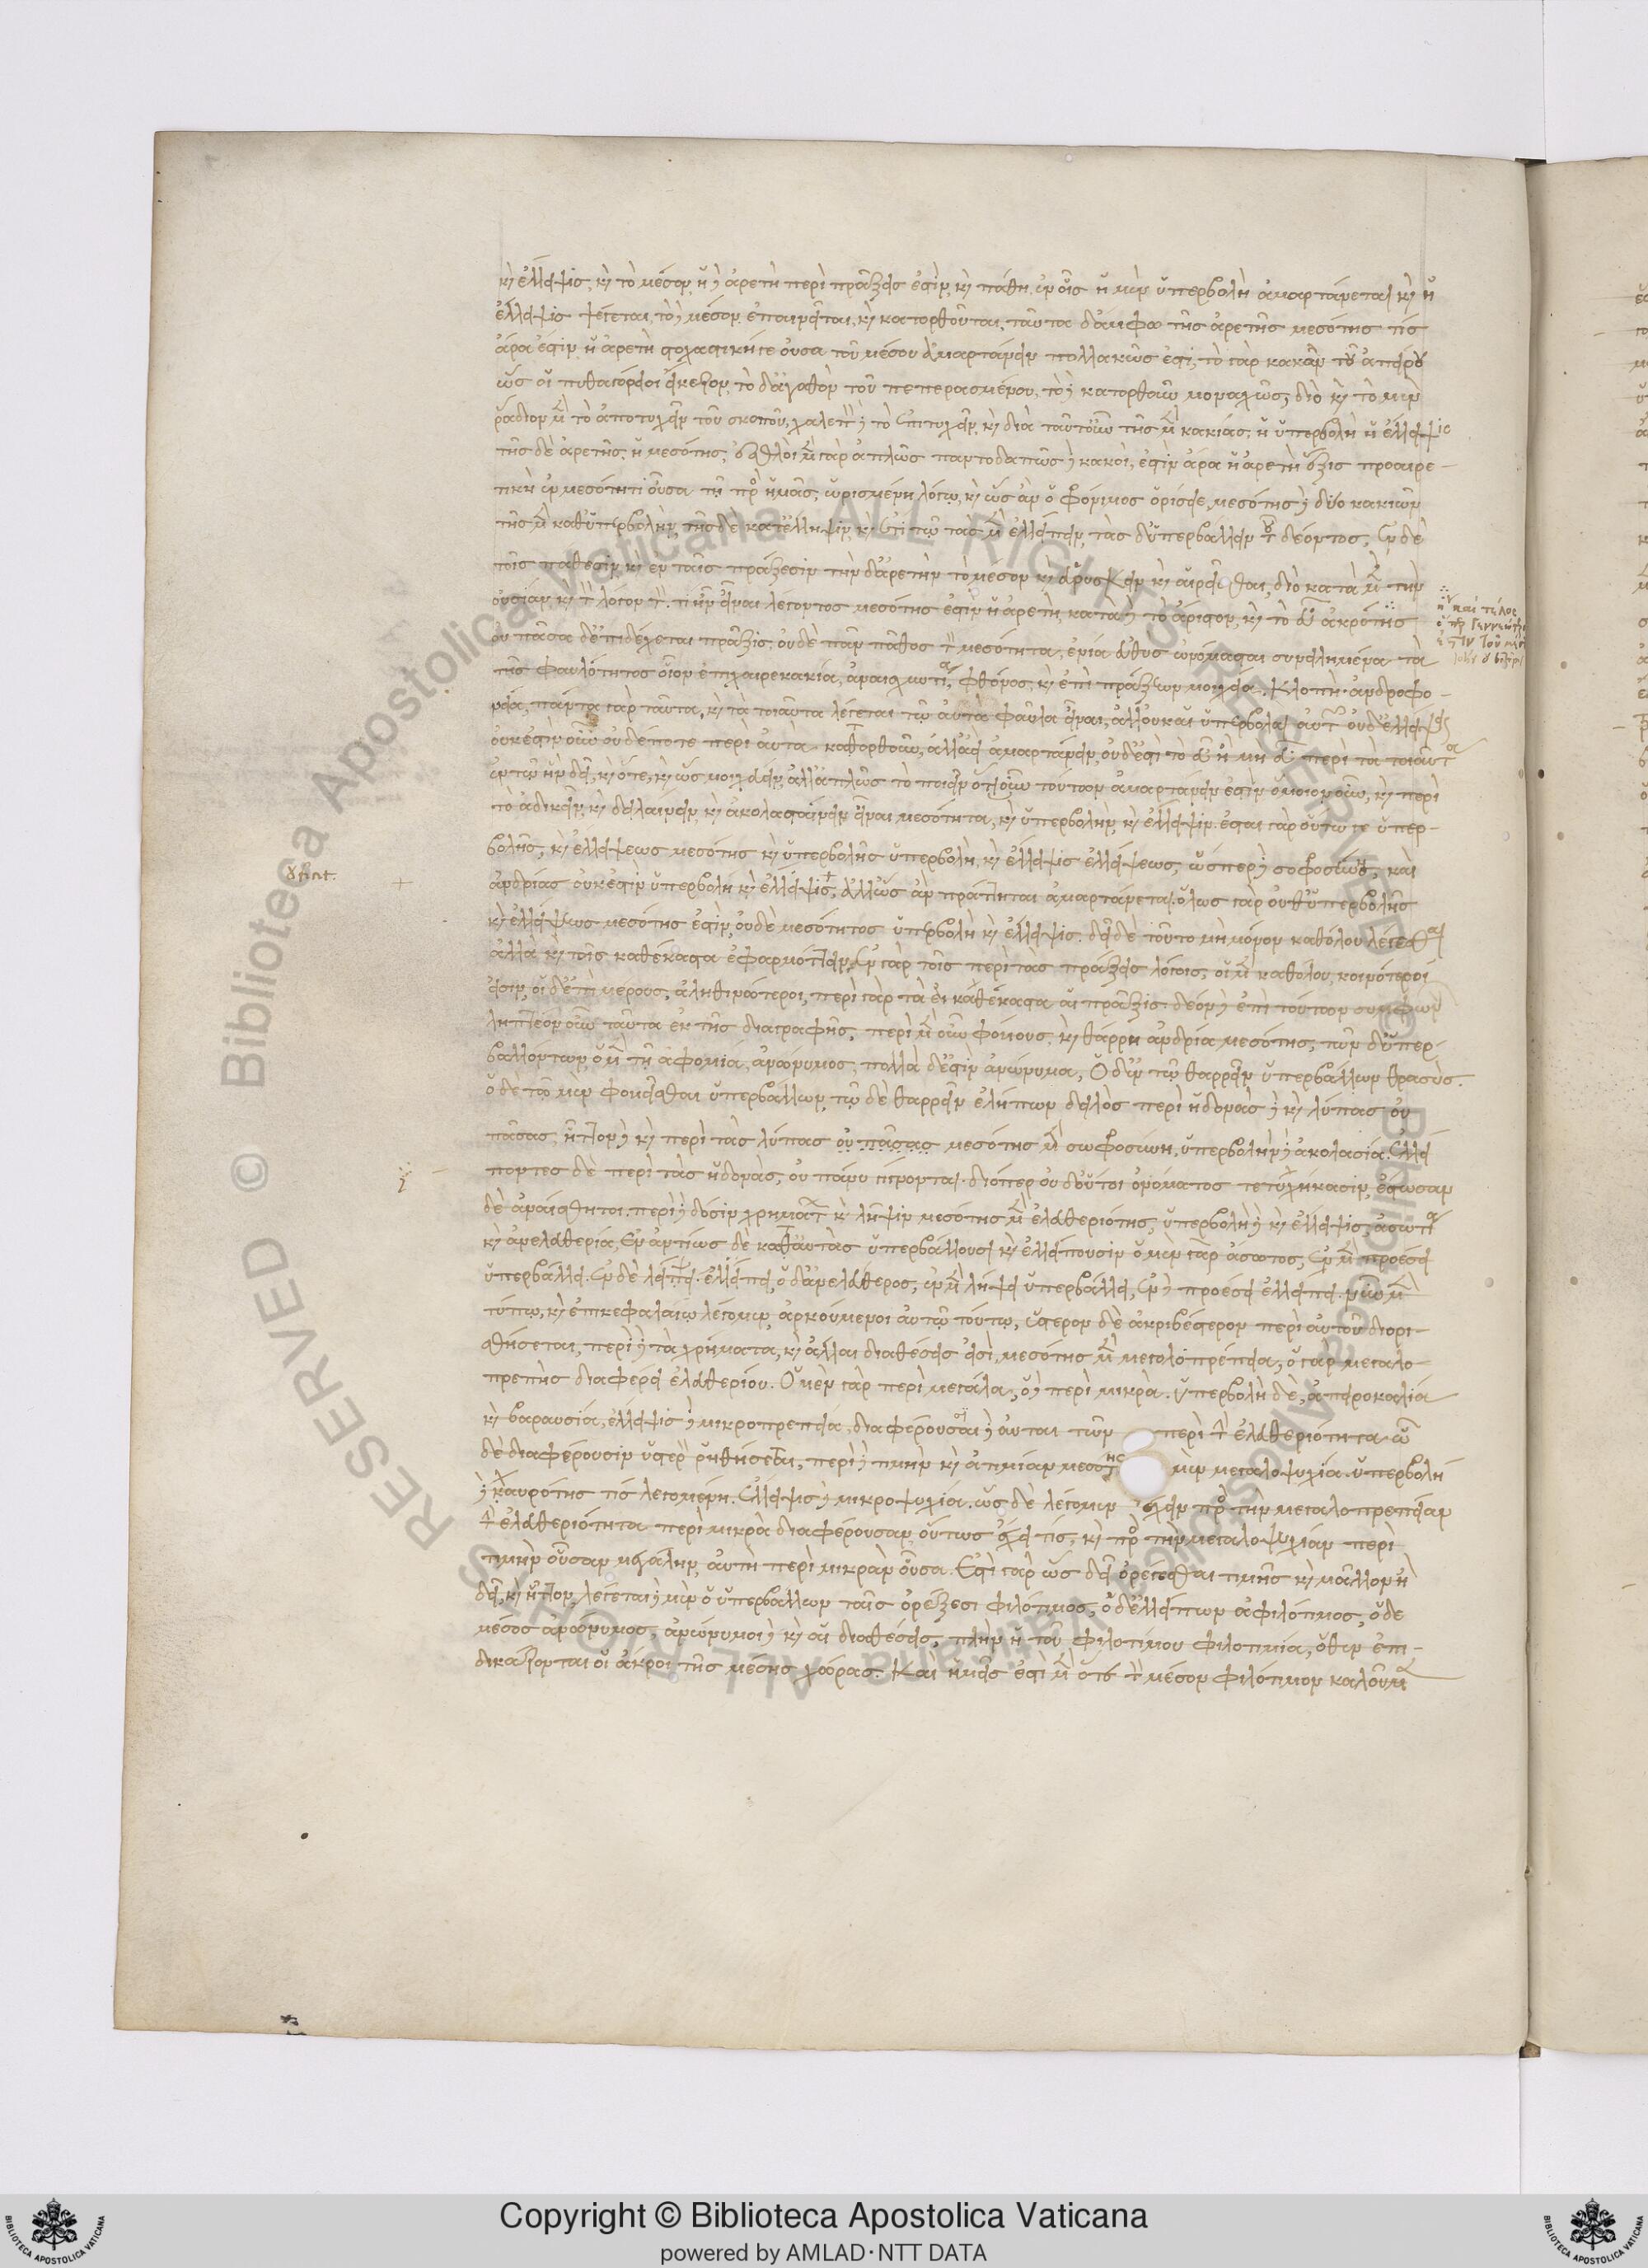 κ(αὶ) ἔλλειψις, κ(αὶ) τὸ μέσον, ἡ δ(ὲ) ἀρετὴ περὶ πράξεις ἐστὶν, κ(αὶ) πάθη, ἐν οἷς ἡ μὲν ὑπερβολὴ ἁμαρτάνεται κ(αὶ) ἡ
ἔλλειψις ψέγεται, τὸ δ(ὲ) μέσον ἐπαινεῖται, κ(αὶ) κατορθοῦται, ταῦτα δ' ἄμφω τῆς ἀρετῆς μεσότης τίς
ἄρα ἐστὶν ἡ ἀρετὴ στοχαστική γε οὖσα τοῦ μέσου ἁμαρτάνειν πολλακῶς ἐστι, τὸ γὰρ κακὸν τοῦ ἀπείρου
ὡς οἱ πυθαγόρειοι εἴκαζον, τὸ δ' ἀγαθὸν τοῦ πεπερασμένου, τὸ δ(ὲ) κατορθοῦν μοναχῶς, διὸ κ(αὶ) τὸ μὲν
ῥάδιον μ(ὲν) τὸ ἀποτυχεῖν τοῦ σκοποῦ, χαλεπὸν δ(ὲ) τὸ ἐπιτυχεῖν, κ(αὶ) διὰ ταῦτ' οὖν τῆς μ(ὲν) κακίας, ἡ ὑπερβολὴ ἡ ἔλλειψις
τῆς δὲ ἀρετῆς, ἡ μεσότης, ἐσθλοὶ μ(ὲν) γὰρ ἁπλῶς παντοδαπῶς δ(ὲ) κακοί, ἐστὶν ἄρα ἡ ἀρετὴ ἕξις προαιρε-
τικὴ ἐν μεσότητι οὖσα τῇ πρὸς ἡμᾶς, ὡρισμένη λόγῳ, κ(αὶ) ὡς ἂν ὁ φρόνιμος ὁρίσειε, μεσότης δ(ὲ) δύο κακιῶν
τῆς μ(ὲν) καθ' ὑπερβολὴν, τῆς δὲ κατ' ἔλλειψιν, κ(αὶ) ἔτι τῷ τὰς μ(ὲν) ἐλλείπειν, τὰς δ' ὑπερβάλλειν τοῦ δέοντος, ἐν δὲ
τοῖς πάθεσιν κ(αὶ) ἐν ταῖς πράξεσιν τὴν δ' ἀρετὴν τὸ μέσον κ(αὶ) εὑρίσκειν κ(αὶ) αἱρεῖσθαι, διὸ κατὰ μ(ὲν) τὴν
οὐσίαν κ(αὶ) τὸν λόγον τὸν τί ἦν εἶναι λέγοντος μεσότης ἐστὶν ἡ ἀρετὴ, κατὰ δ(ὲ) τὸ ἄριστον, κ(αὶ) τὸ εὖ ἀκρότης
οὐ πᾶσα δ' ἐπιδέχεται πρᾶξις, οὐδὲ πᾶν πάθος τὴν μεσότητα, ἔνια εὐθὺς ὠνόμασται συνειλημμένα τὰ
τῆς φαυλότητος οἷον ἐπιχαιρεκακία, ἀναισχυντία, φθόνος, κ(αὶ) ἐπὶ πράξεων μοιχεία, κλοπὴ, ἀνδροφο-
νία, πάντα γὰρ ταῦτα, κ(αὶ) τὰ τοιαῦτα λέγεται τῷ αὐτὰ φαῦλα εἶναι, ἀλλ' οὐκ αἱ ὑπερβολαὶ αὐτῶν οὐδ' ἐλλείψεις
οὐκ ἔστιν οὖν οὐδέποτε περὶ αὐτὰ κατορθοῦν, ἀλλ' ἀεὶ ἁμαρτάνειν, οὐδ' ἐστὶ τὸ εὖ ἢ μὴ εὖ περὶ τὰ τοιαῦτα
ἐν τῷ ἣν δεῖ, κ(αὶ) ὅτε, κ(αὶ) ὡς μοιχεύειν, ἀλλ' ἁπλῶς τὸ ποιεῖν ὁτιοῦν τούτων ἁμαρτάνειν ἐστὶν ὅμοιον οὖν, κ(αὶ) περὶ
τὸ ἀδικεῖν, κ(αὶ) δειλαίνειν, κ(αὶ) ἀκολασταίνειν εἶναι μεσότητα, κ(αὶ) ὑπερβολὴν, κ(αὶ) ἔλλειψιν. ἔσται γὰρ οὕτω γε ὑπερ-
βολῆς, κ(αὶ) ἐλλείψεως μεσότης κ(αὶ) ὑπερβολῆς ὑπερβολὴ, κ(αὶ) ἔλλειψις ἐλλείψεως, ὥσπερ δ(ὲ) σωφροσύνης, καὶ
ἀνδρίας οὐκ ἔστιν ὑπερβολὴ κ(αὶ) ἔλλειψις, ἀλλ' ὡς ἂν πράττηται ἁμαρτάνεται. ὅλως γὰρ οὐθ' ὑπερβολῆς
κ(αὶ) ἐλλείψεως μεσότης ἐστὶν, οὐδὲ μεσότητος ὑπερβολὴ κ(αὶ) ἔλλειψις. δεῖ δὲ τοῦτο μὴ μόνον καθόλου λέγεσθαι
ἀλλὰ κ(αὶ) τοῖς καθέκαστα ἐφαρμόττειν. ἐν γὰρ τοῖς περὶ τὰς πράξεις λόγοις, οἱ μ(ὲν) καθόλου, κοινότεροί
εἰσιν, οἱ δ' ἐπὶ μέρους, ἀληθινώτεροι, περὶ γὰρ τὰ καθέκαστα αἱ πράξεις. δέον δ(ὲ) ἐπὶ τούτων συμφων
ληπτέον οὖν ταῦτα ἐκ τῆς διαγραφῆς, περὶ μ(ὲν) οὖν φόβους, κ(αὶ) θάρρη ἀνδρία μεσότης, τῶν δ' ὑπερ-
βαλλόντων, ὁ μ(ὲν) τῇ ἀφοβίᾳ, ἀνώνυμος, πολλὰ δ' ἐστὶν ἀνώνυμα, ὁ δ' ἐν τῷ θαρρεῖν ὑπερβάλλων θρασύς.
ὁ δὲ τῷ μὲν φοβεῖσθαι ὑπερβάλλων, τῷ δὲ θαρρεῖν ἐλλείπων δειλός περὶ ἡδονὰς δ(ὲ) κ(αὶ) λύπας οὐ
πάσας, ἧττον δ(ὲ) κ(αὶ) περὶ τὰς λύπας οὐ πάσας μεσότης μ(ὲν) σωφροσύνη, ὑπερβολὴ δ(ὲ) ἀκολασία. ἐλλεί
ποντες δὲ περὶ τὰς ἡδονὰς, οὐ πάνυ γίνονται. διόπερ οὐδ' οὗτοι ὀνόματος τετυχήκασιν, ἔστωσαν
δὲ ἀναίσθητοι. περὶ δ(ὲ) δόσιν χρημάτων κ(αὶ) λῆψιν μεσότης μ(ὲν) ἐλευθεριότης, ὑπερβολὴ δ(ὲ) κ(αὶ) ἔλλειψις, ἀσωτία
κ(αὶ) ἀνελευθερία, ἐναντίως δὲ καθ' αὑτὰς ὑπερβάλλουσι κ(αὶ) ἐλλείπουσιν ὁ μὲν γὰρ ἄσωτος, ἐν μ(ὲν) προέσει
ὑπερβάλλει. ἐν δὲ λήψει ἐλλείπει, ὁ δ' ἀνελεύθερος, ἐν μ(ὲν) λήψει ὑπερβάλλει, ἐν δ(ὲ) προέσει ἐλλείπει. νῦν μ(ὲν)
τύπῳ, κ(αὶ) ἐπικεφαλαίῳ λέγομεν, ἀρκούμενοι αὐτῷ τούτῳ, ὕστερον δὲ ἀκριβέστερον περὶ αὐτοῦ διορι-
σθήσεται, περὶ δ(ὲ) τὰ χρήματα, κ(αὶ) ἄλλαι διαθέσεις εἰσὶ, μεσότης μ(ὲν) μεγαλοπρέπεια, ὁ γὰρ μεγαλο-
πρεπὴς διαφέρει ἐλευθερίου. ὁ μὲν γὰρ περὶ μεγάλα, ὁ δ(ὲ) περὶ μικρά. ὑπερβολὴ δὲ, ἀπειροκαλία
κ(αὶ) βαναυσία, ἔλλειψις δ(ὲ) μικροπρέπεια, διαφέρουσαι δ(ὲ) αὗται τῶν περὶ τὴν ἐλευθεριότητα ᾧ
δὲ διαφέρουσιν ὕστερον ῥηθήσεται, περὶ δ(ὲ) τιμὴν κ(αὶ) ἀτιμίαν μεσότης μὲν μεγαλοψυχία. ὑπερβολὴ
δ(ὲ) χαυνότης τις λεγομένη. ἔλλειψις δ(ὲ) μικροψυχία. ὡς δὲ λέγομεν ἔχειν πρὸς τὴν μεγαλοπρέπειαν
τὴν ἐλευθεριότητα περὶ μικρὰ διαφέρουσαν, οὕτως ἔχει τις, κ(αὶ) πρὸς τὴν μεγαλοψυχίαν περὶ
τιμὴν οὖσαν μεγάλην, αὐτὴ περὶ μικρὰν οὖσα. ἔστι γὰρ ὡς δεῖ ὀρέγεσθαι τιμῆς κ(αὶ) μᾶλλον ἢ
δεῖ, κ(αὶ) ἧττον, λέγεται δ(ὲ) μὲν ὁ ὑπερβάλλων ταῖς ὀρέξεσι φιλότιμος, ὁ δ' ἐλλείπων ἀφιλότιμος, ὁ δὲ
μέσος ἀνώνυμος, ἀνώνυμοι δ(ὲ) κ(αὶ) αἱ διαθέσεις, πλὴν ἡ τοῦ φιλοτίμου φιλοτιμία, ὅθεν ἐπι-
δικάζονται οἱ ἄκροι τῆς μέσης χώρας. καὶ ἡμεῖς ἔστι μ(ὲν) ὅτε τὸν μέσον φιλότιμον καλοῦμεν
Copyright © Biblioteca Apostolica Vaticana
powered by AMLAD·NTT DATA